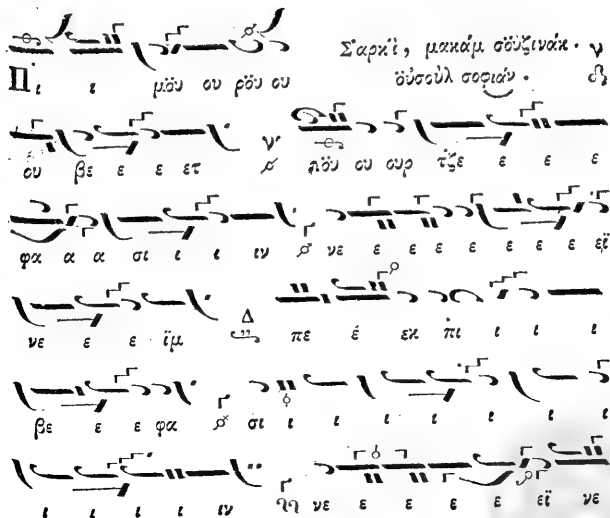 Σαρκῒ, μακάμ σȣ̈ζινάκ.
ȣ̈σοὺλ σοφιάν.
Πι ι μȣ̈υ ου ρȣ̈υ ου
ου βε ε ε ετ ν πȣ̈υ ου ουρ τζε ε ε ε
φα α α σι ι ι ιν νε ε ε ε ε ε ε ε εϊ
νε ε ε ϊμ Δ πε έ εκ πι ι ι ι
βε ε ε φα σι ι ι ι ι ι ι ι
ι ι ι ι ιν νε ε ε ε ε εϊ νε